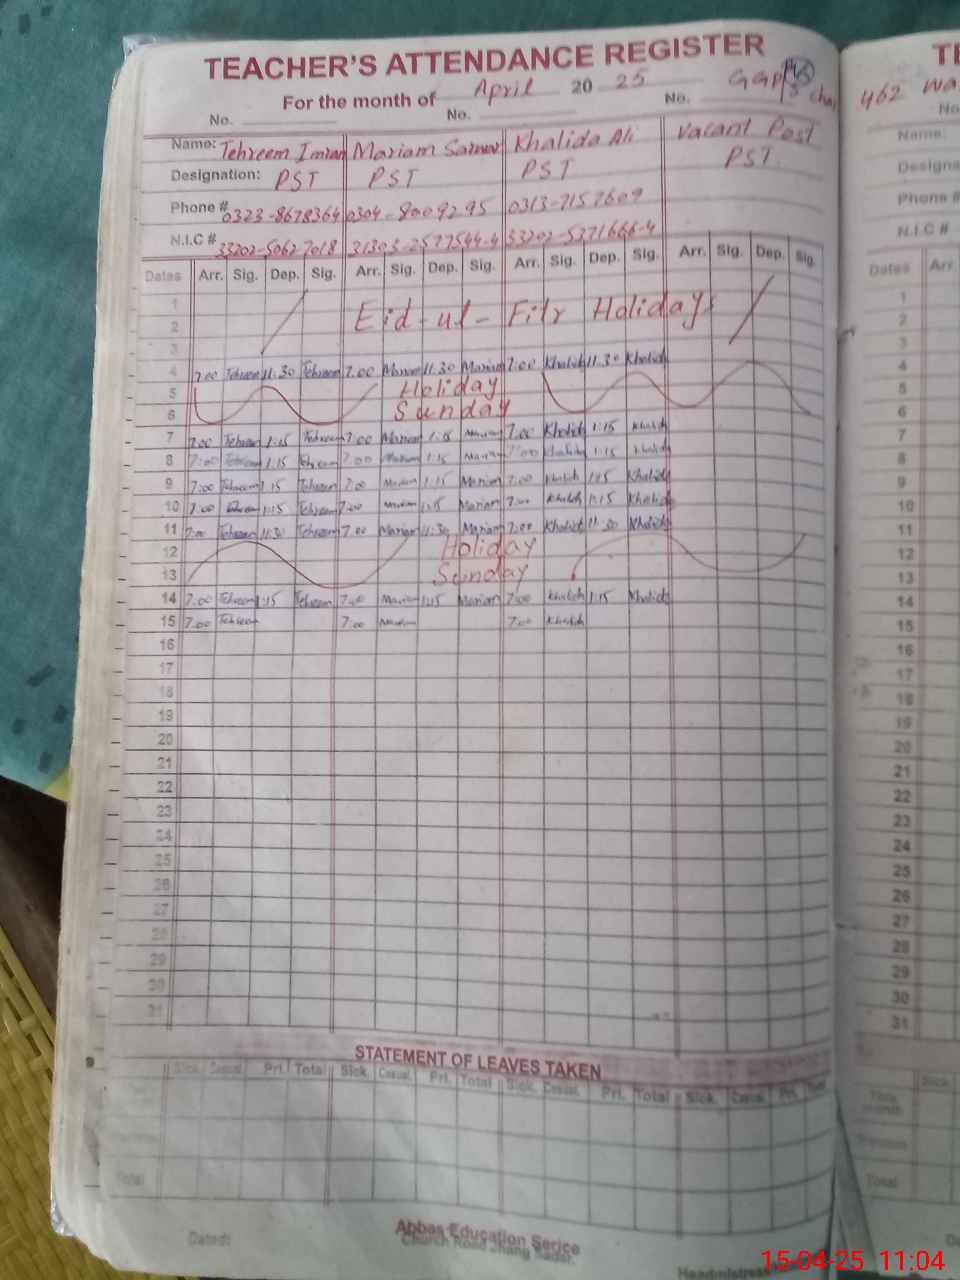 TEACHER'S ATTENDANCE REGISTER
For the month of April 20 25
No. No. No.
Name: Tehreem Imran Mariam Sarwar Khalida Ali Vacant Post
Designation: PST PST PST PST
Phone # 0323-8678364 0304-8009295 0313-7157609
N.I.C # 33202-5062 7018 31303-2577544-4 33202-5371666-4
Dates Arr. Sig. Dep. Sig. Arr. Sig. Dep. Sig. Arr. Sig. Dep. Sig. Arr. Sig. Dep. Sig.
1
Eid-ul-Fitr Holidays
2
3
4 7.00 Tehreem 11.30 Tehreem 7.00 Mariam 11.30 Mariam 7.00 Khalida 11.30 Khalida
5 Holiday
6 Sunday
7 7.00 Tehreem 1:15 Tehreem 7.00 Mariam 1:15 Mariam 7.00 Khalida 1:15 Khalida
8 7:00 Tehreem 1:15 Tehreem 7.00 Mariam 1:15 Mariam 7:00 Khalida 1:15 Khalida
9 7:00 Tehreem 1:15 Tehreem 7.00 Mariam 1:15 Mariam 7.00 Khalida 1:15 Khalida
10 7.00 Tehreem 1:15 Tehreem 7.00 Mariam 1:15 Mariam 7.00 Khalida 1:15 Khalida
11 7:00 Tehreem 11:30 Tehreem 7.00 Mariam 11:30 Mariam 7.00 Khalida 11:30 Khalida
12 Holiday
13 Sunday
14 7.00 Tehreem 1:15 Tehreem 7.00 Mariam 1:15 Mariam 7:00 Khalida 1:15 Khalida
15 7.00 Tehreem 7:00 Mariam 7:00 Khalida
16
17
18
19
20
21
22
23
24
25
26
27
28
29
30
31
STATEMENT OF LEAVES TAKEN
Sick Casual Pri. Total Sick. Casual. Pri. Total Sick. Casual. Pri. Total Sick. Casual. Pri. Total
Total
Dated:
Abbas Education Serice
Church Road Jhang Sadar.
Headmistress
TE
462
No
Name:
Designa
Phone #
N.I.C #
Dates Arr.
1
2
3
4
5
6
7
8
9
10
11
12
13
14
15
16
17
18
19
20
21
22
23
24
25
26
27
28
29
30
31
Sick
This month
Total
15-04-25 11:04